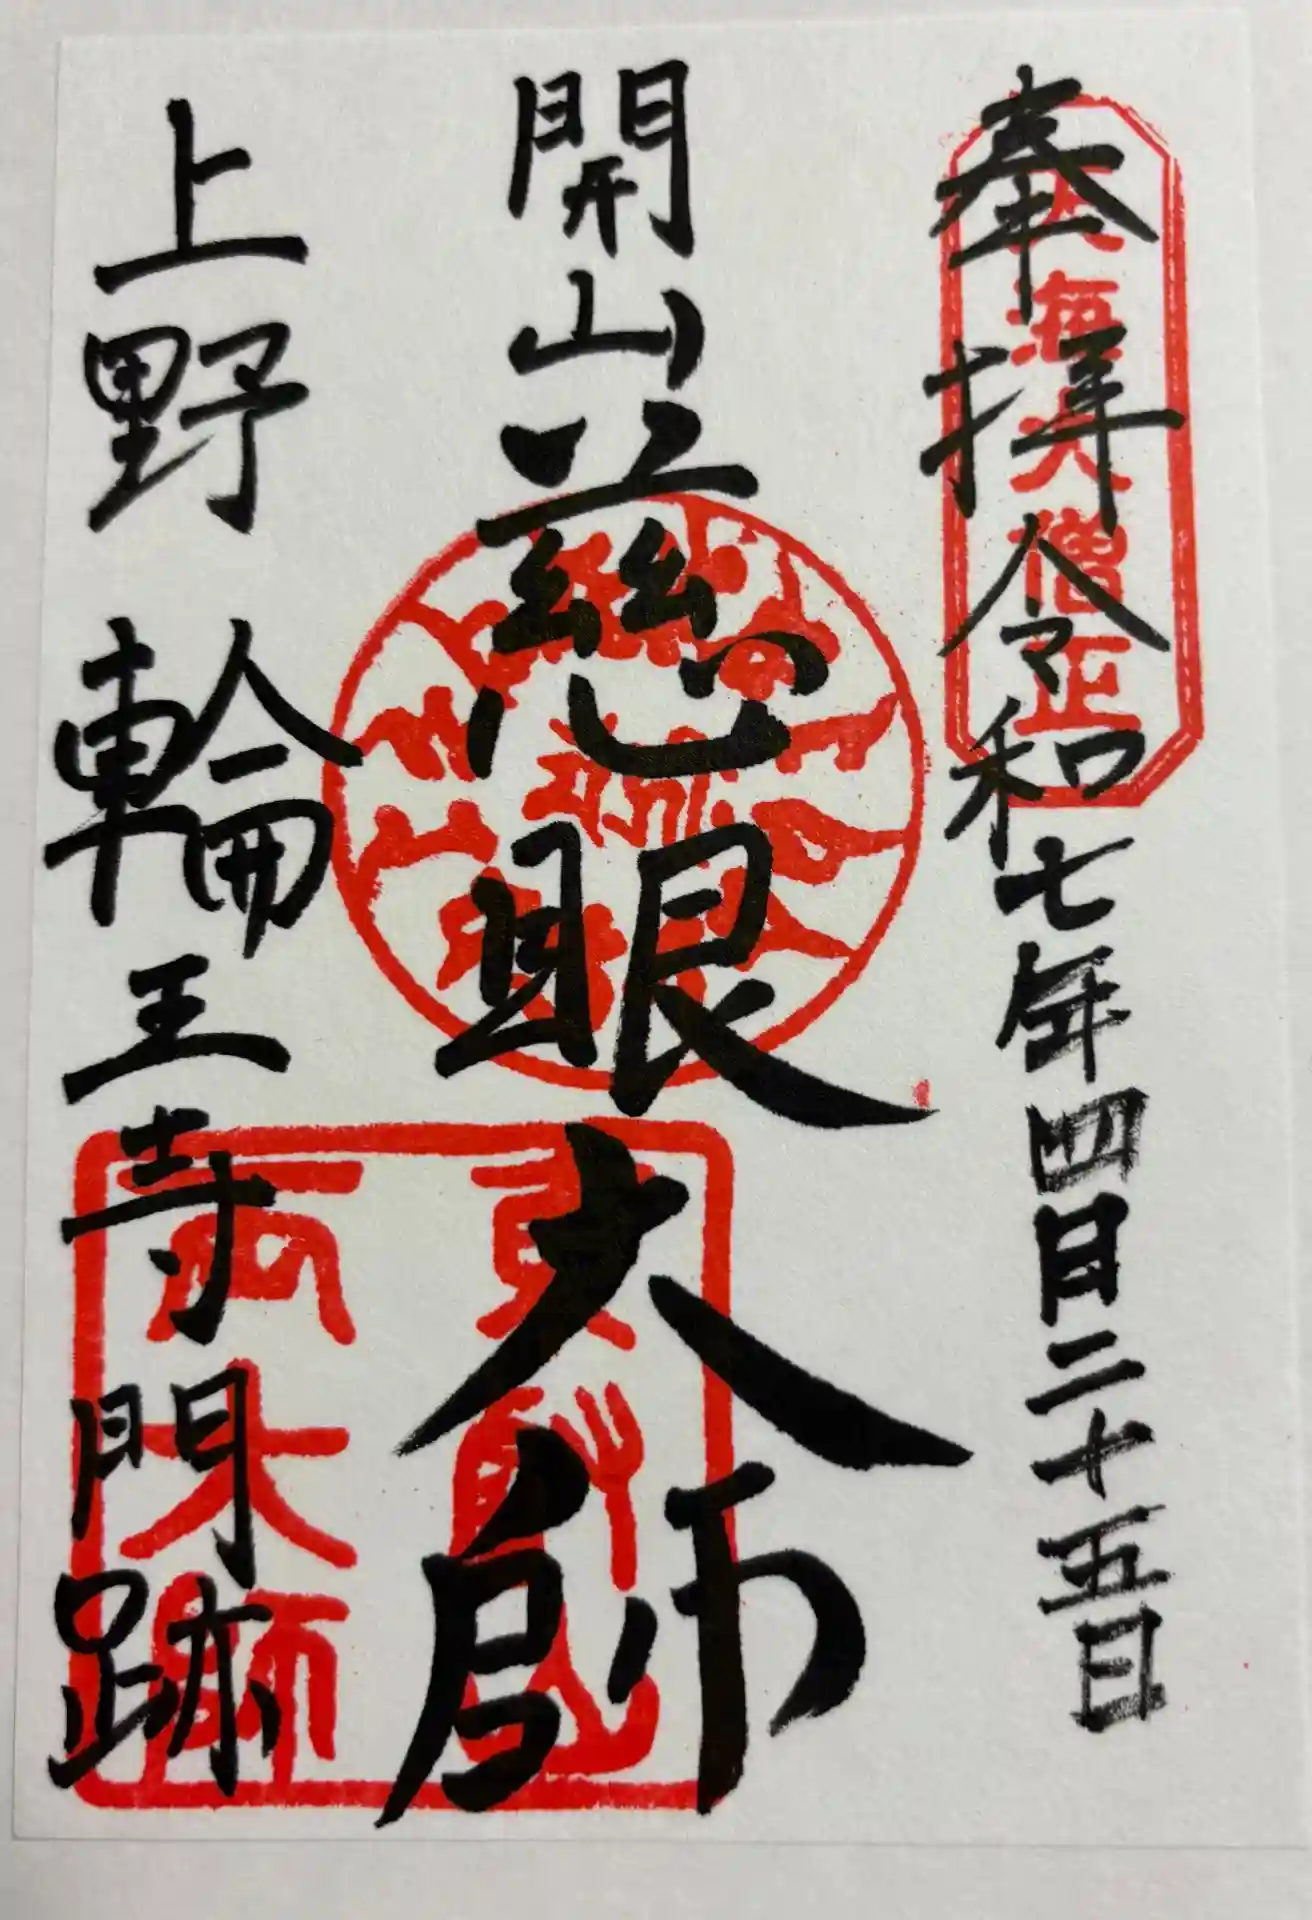 奉拝 令和七年四月二十五日
天海大僧正
開山 慈眼大師
上野 輪王寺門跡
東叡山
両大師